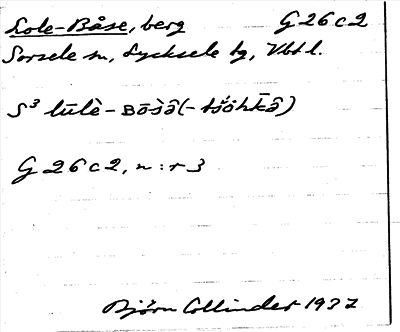 Lole-Båse, berg G 26 c 2
Sorsele sn, Lycksele lg, Vbtl.
S³ lūlè-Bōsò̂(-tsóhkā̂)
G 26 c 2, n:r 3
Björn Collinder 1937